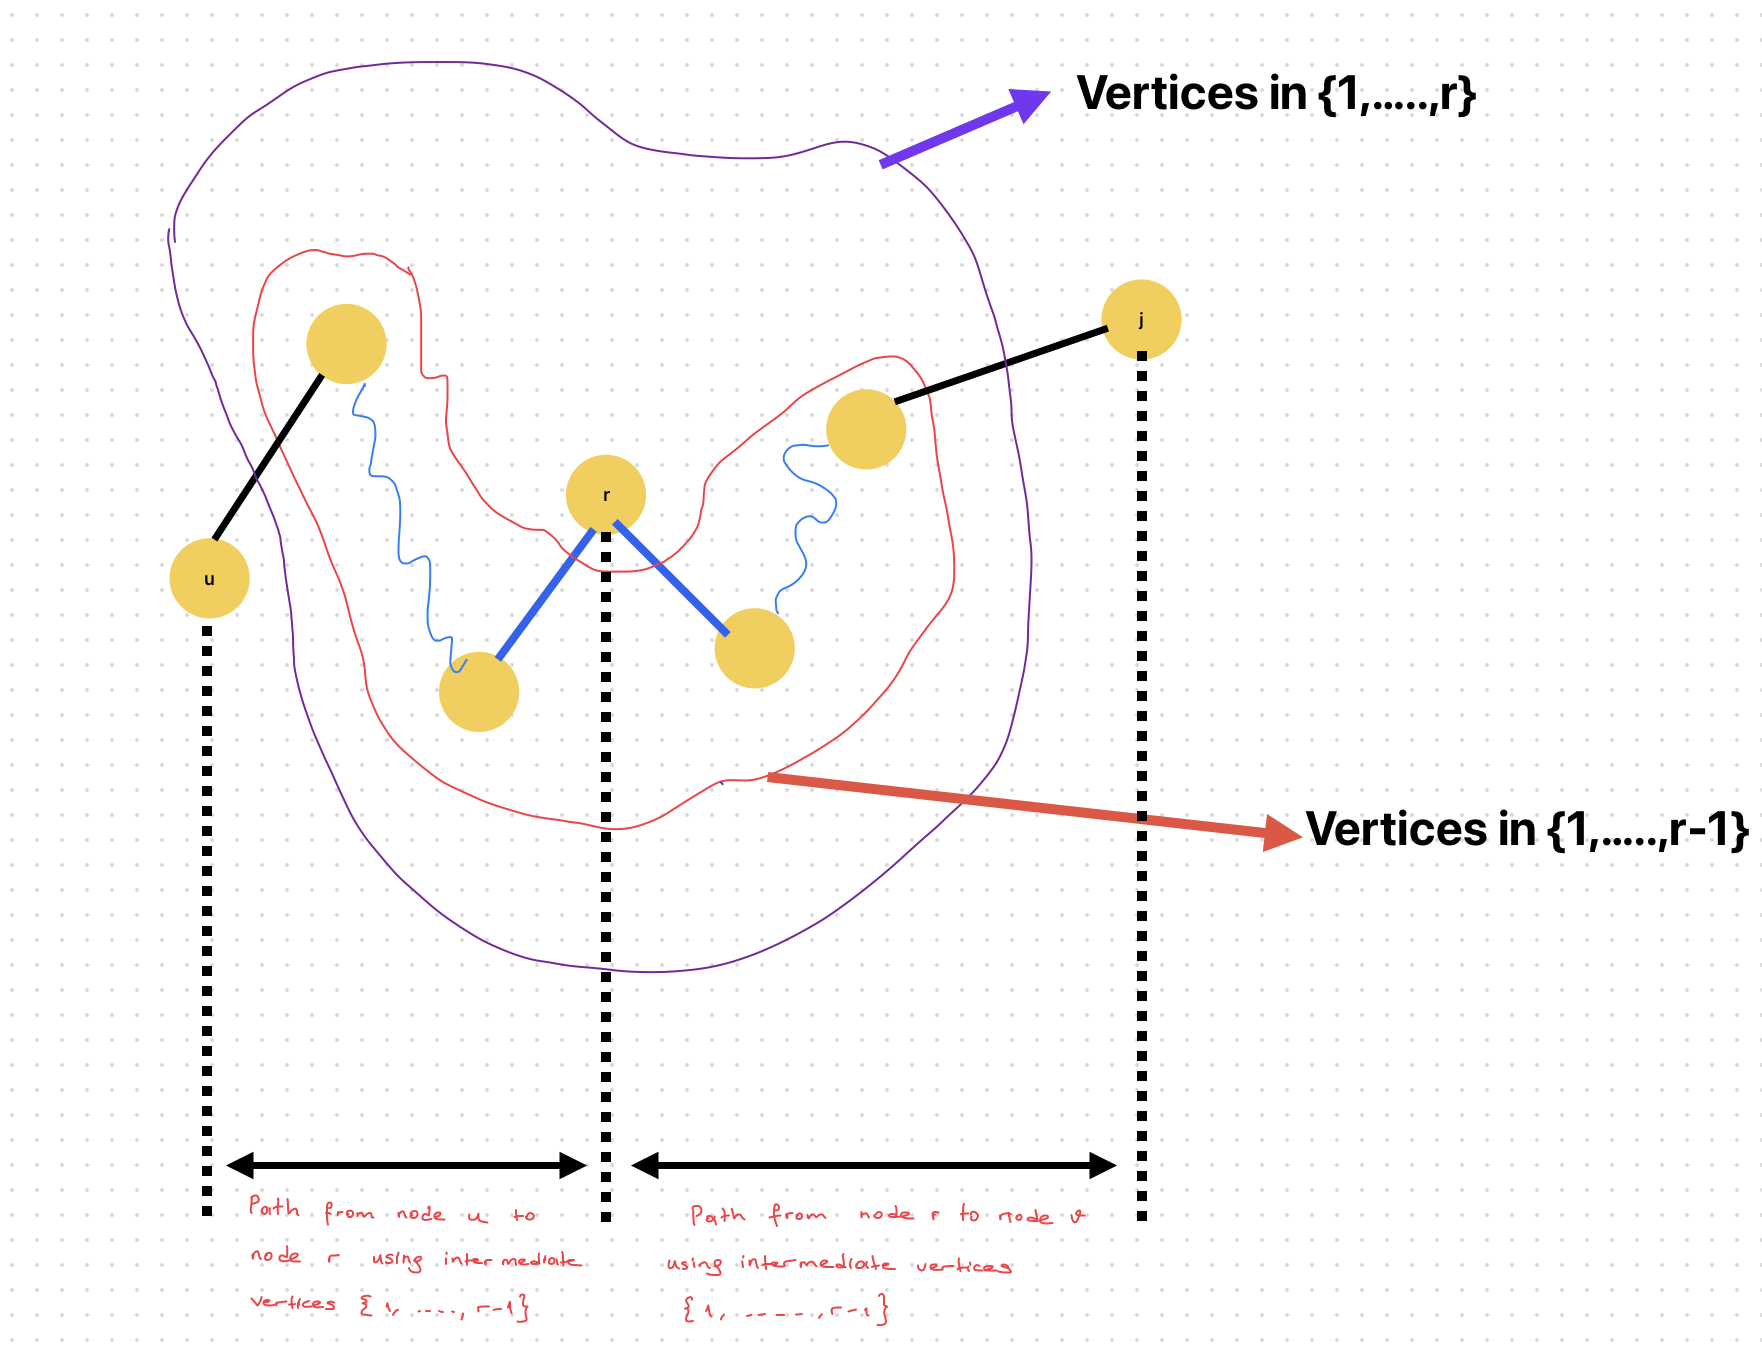 Vertices in {1,.....,r}
j
r
u
Vertices in {1,.....,r-1}
Path from node u to
node r using intermediate
vertices { 1, ....., r-1}
Path from node r to node v
using intermediate vertices
{ 1, ------, r-1 }